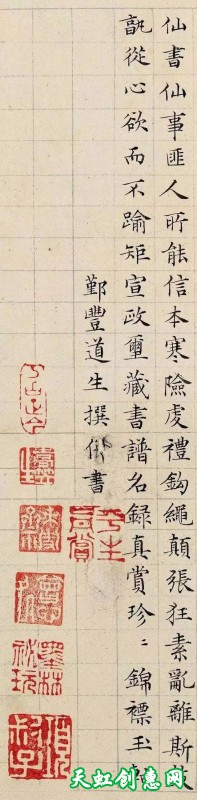 仙書仙事匪人所能信本寒險虔禮鈎繩顛張狂素亂離斯
孰從心欲而不踰矩宣政璽藏書譜名錄真賞珍〻錦褾玉
鄞豐道生撰併書
平生真賞
墨林祕玩
天虹创意网